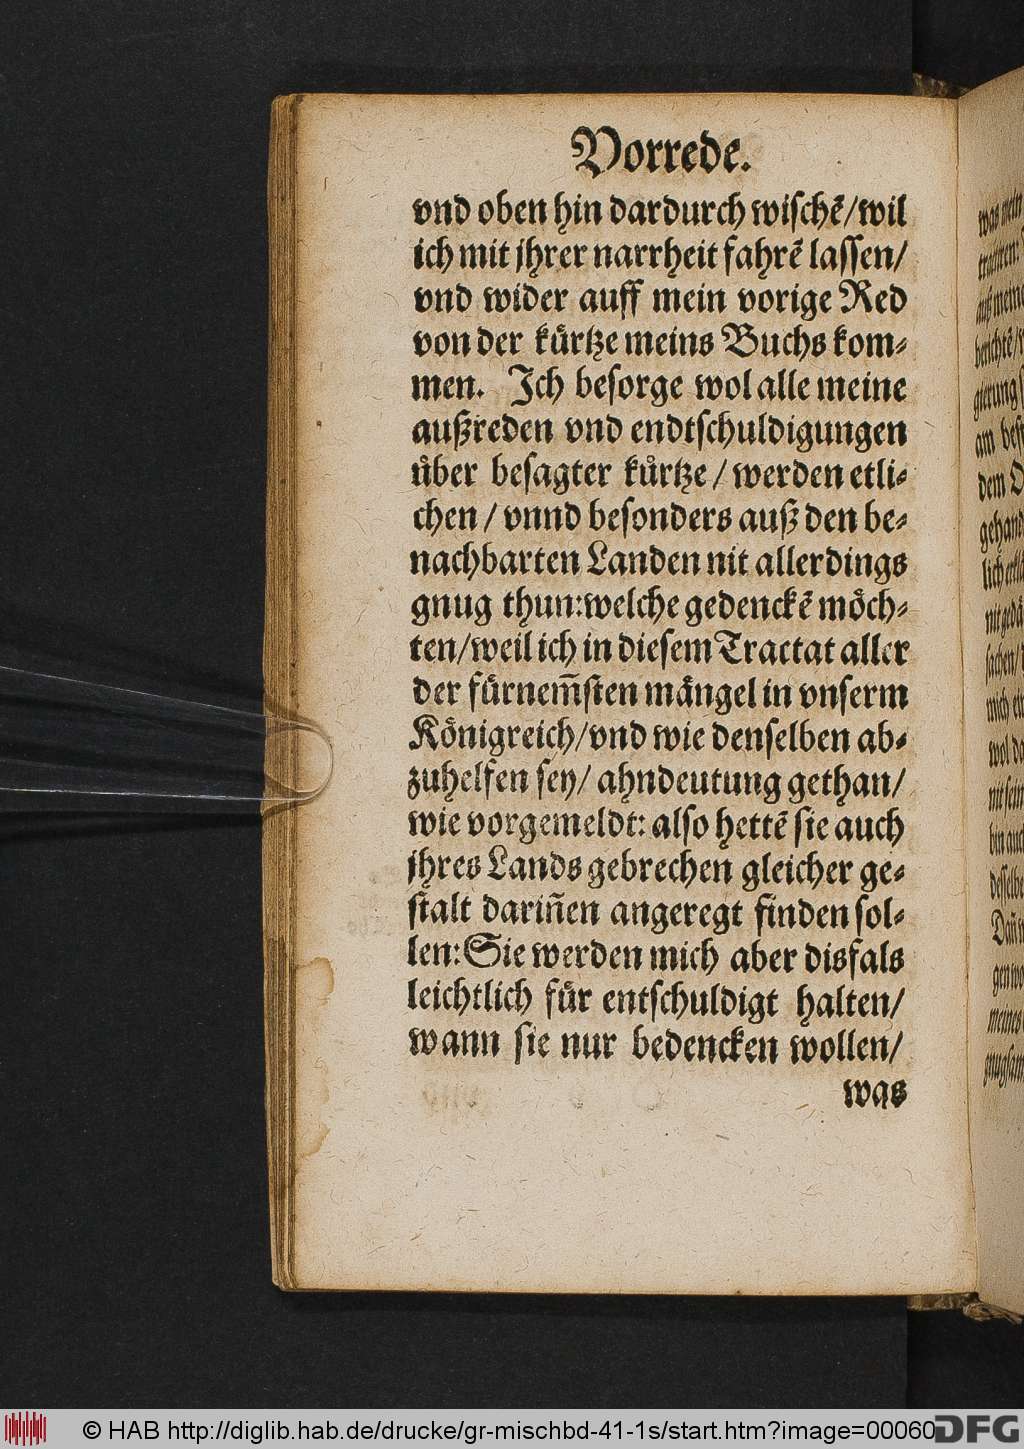 Vorrede.
vnd oben hin dardurch wischẽ/wil
ich mit jhrer narrheit fahrẽ lassen/
vnd wider auff mein vorige Red
von der kuͤrtze meins Buchs kom⸗
men. Ich besorge wol alle meine
außreden vnd endtschuldigungen
uͤber besagter kuͤrtze / werden etli⸗
chen / vnnd besonders auß den be⸗
nachbarten Landen nit allerdings
gnug thun:welche gedenckẽ moͤch⸗
ten/weil ich in diesem Tractat aller
der fuͤrnem̃sten maͤngel in vnserm
Koͤnigreich/vnd wie denselben ab⸗
zuhelfen sey/ ahndeutung gethan/
wie vorgemeldt: also hettẽ sie auch
jhres Lands gebrechen gleicher ge⸗
stalt dariñen angeregt finden sol⸗
len:Sie werden mich aber disfals
leichtlich fuͤr entschuldigt halten/
wann sie nur bedencken wollen/
was
© HAB http://diglib.hab.de/drucke/gr-mischbd-41-1s/start.htm?image=00060
DFG